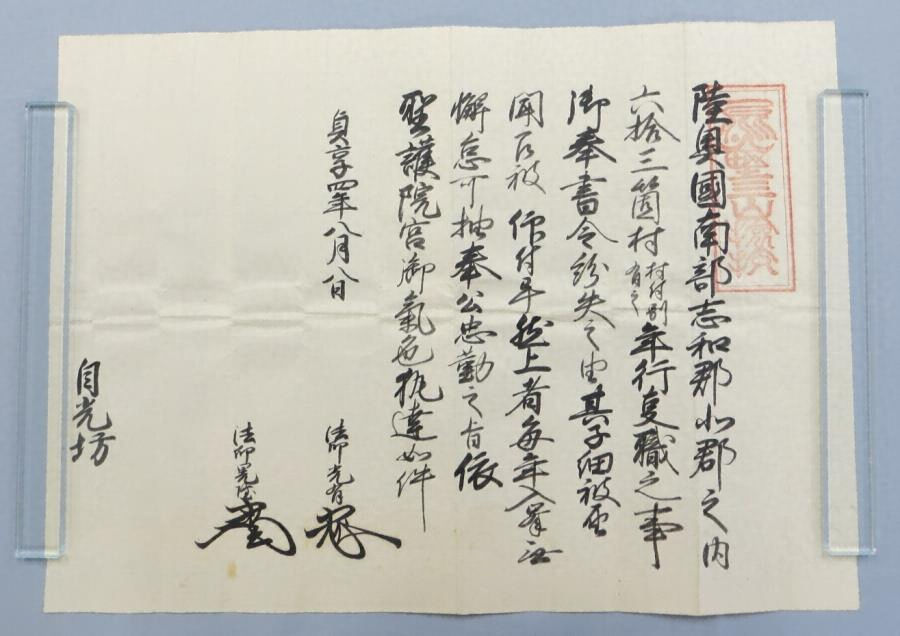 陸奥國南部志和郡北郡之内
六拾三箇村村付別有之年行事職之事
御奉書令紛失之由其子細被
聞召被仰付畢然上者毎年入峯無
懈怠可抽奉公忠勤之旨依
聖護院宮御氣色執達如件
貞享四年八月八日
法印光有
法印
自光坊